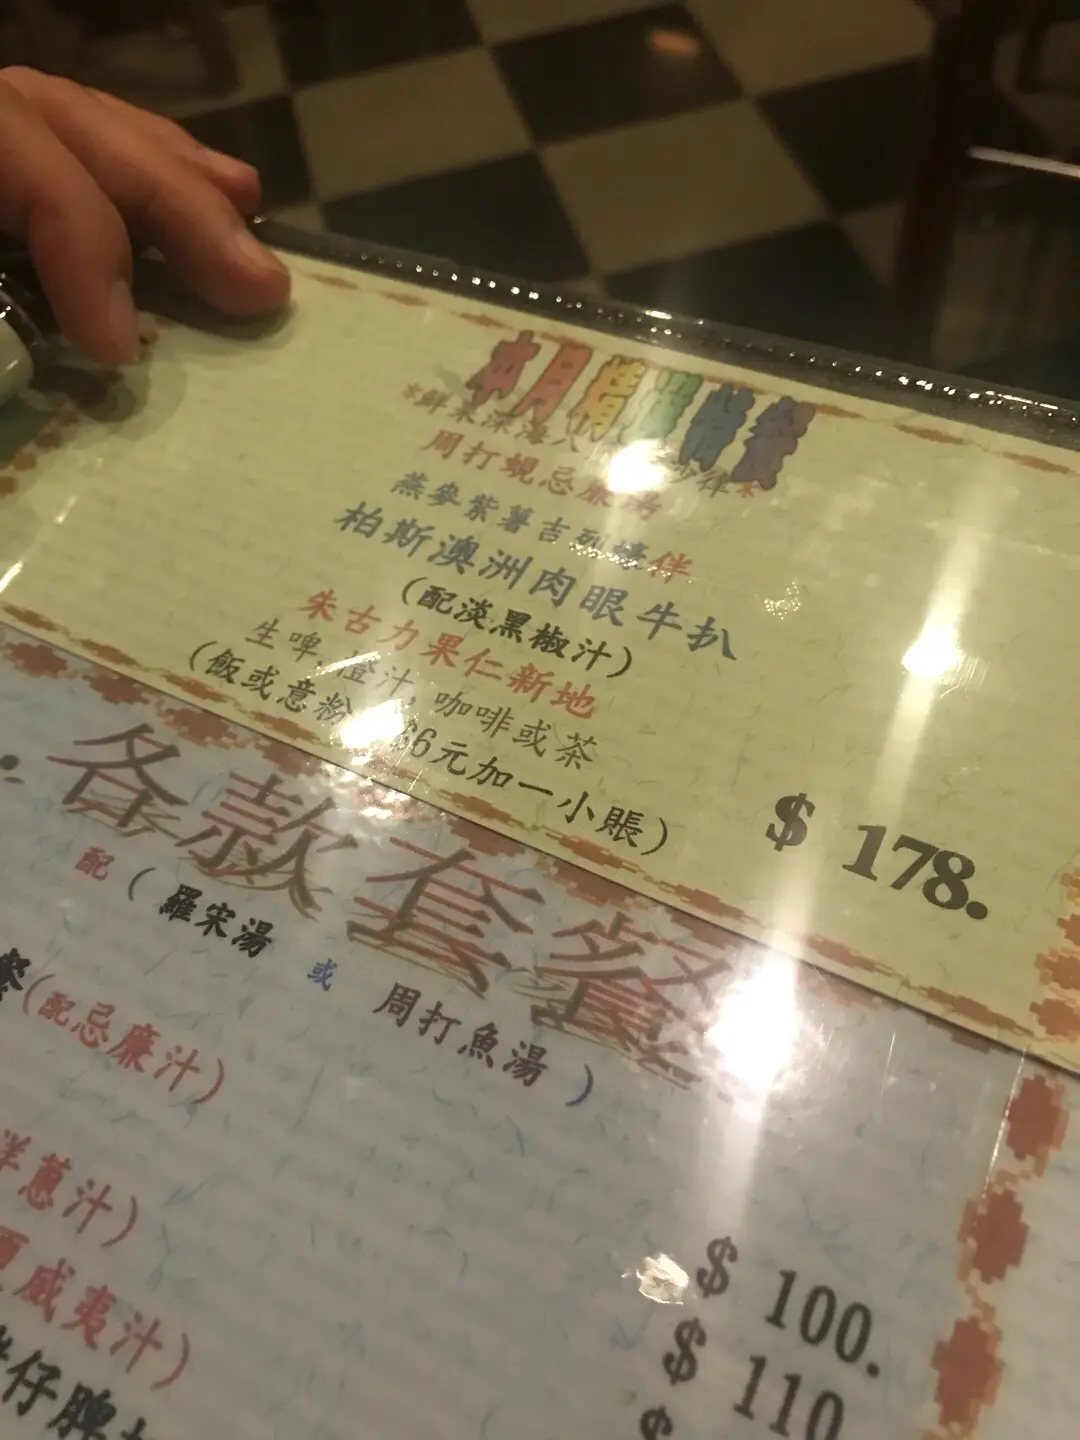 本月精選特餐
*鮮果深海八 沙律*
周打蜆忌廉湯
燕麥紫薯吉列蠔伴
柏斯澳洲肉眼牛扒
(配淡黑椒汁)
朱古力果仁新地
生啤,橙汁,咖啡或茶
(飯或意粉 66元加一小賬)
$ 178.
各款套餐
配 ( 羅宋湯 或 周打魚湯 )
餐(配忌廉汁)
洋蔥汁)
威夷汁)
仔脾
$ 100.
$ 110
$